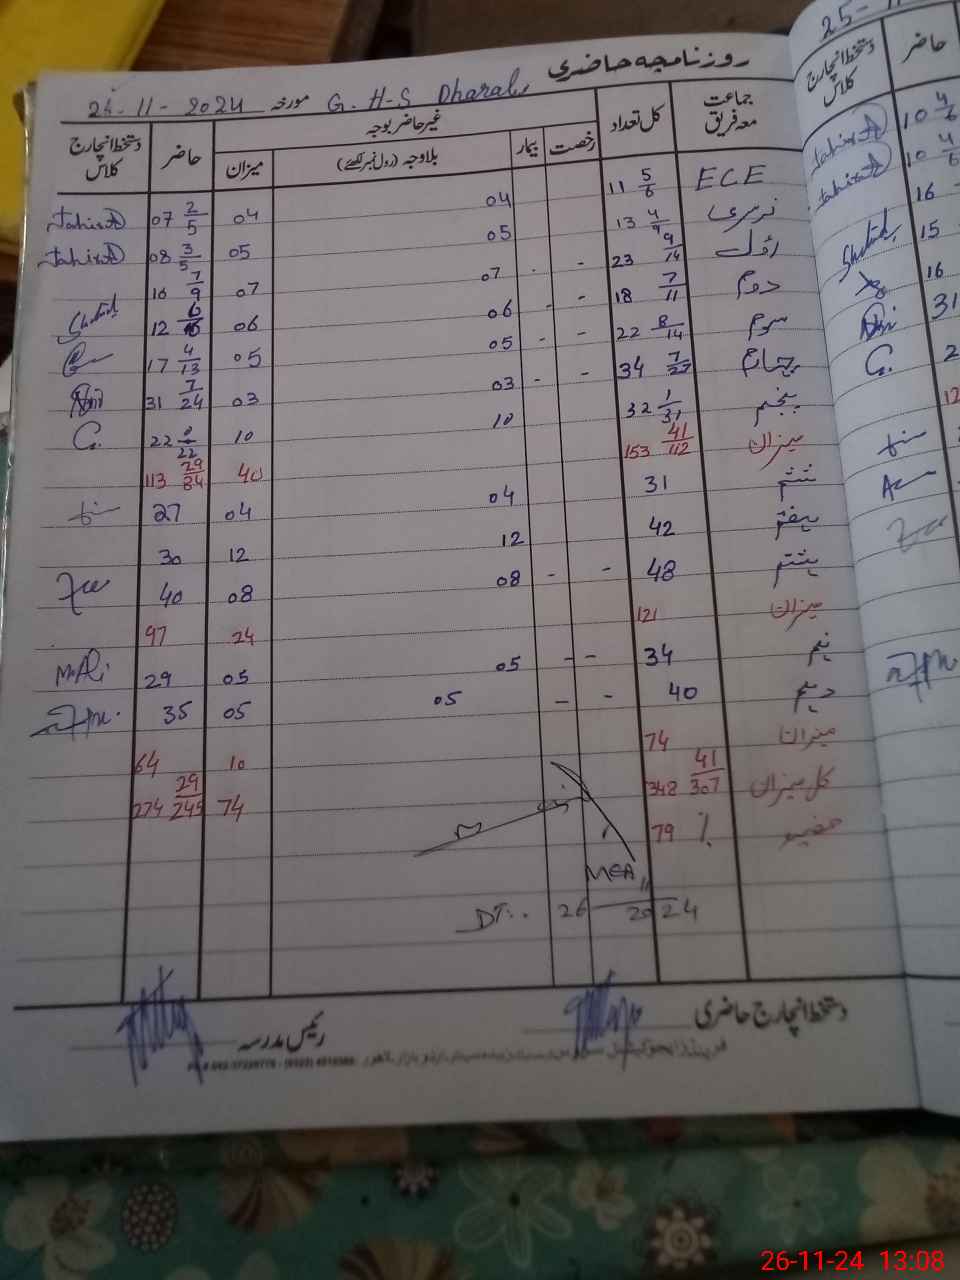 روزنامچہ حاضری
مورخہ 26-11-2024 G.H.S
جماعت معہ فریق کل تعداد غیر حاضر بوجہ حاضر دستخط انچارج کلاس
رخصت بیمار بلاوجہ (رول نمبر لکھئے) میزان
ECE 11 5/6 04 04 07 2/5 Tahira
نرسری 13 4/9 05 05 08 3/5 Tahira
اول 23 9/14 - . 07 07 16 7/9
دوم 18 7/11 - - 06 06 12
سوم 22 8/14 - - 05 05 17 4/13
چہارم 34 7/27 - - 03 03 31 7/24
پنجم 32 1/31 10 10 22 0/22
میزان 153 41/112 40 113 29/84
ششم 31 04 04 27
ہفتم 42 12 12 30
ہشتم 48 - - 08 08 40
میزان 121 24 97
نہم 34 - - 05 05 29 M.Ali
دہم 40 - - 05 05 35
میزان 74 10 64
کل میزان 348 41/307 74 274 29/245
79 %
MEA
DT:. 26 11 2024
دستخط انچارج حاضری
رئیس مدرسہ
25-11
حاضر دستخط انچارج کلاس
10 4/6 Tahira
10 4/6 Tahira
16
15
16
31
26-11-24 13:08